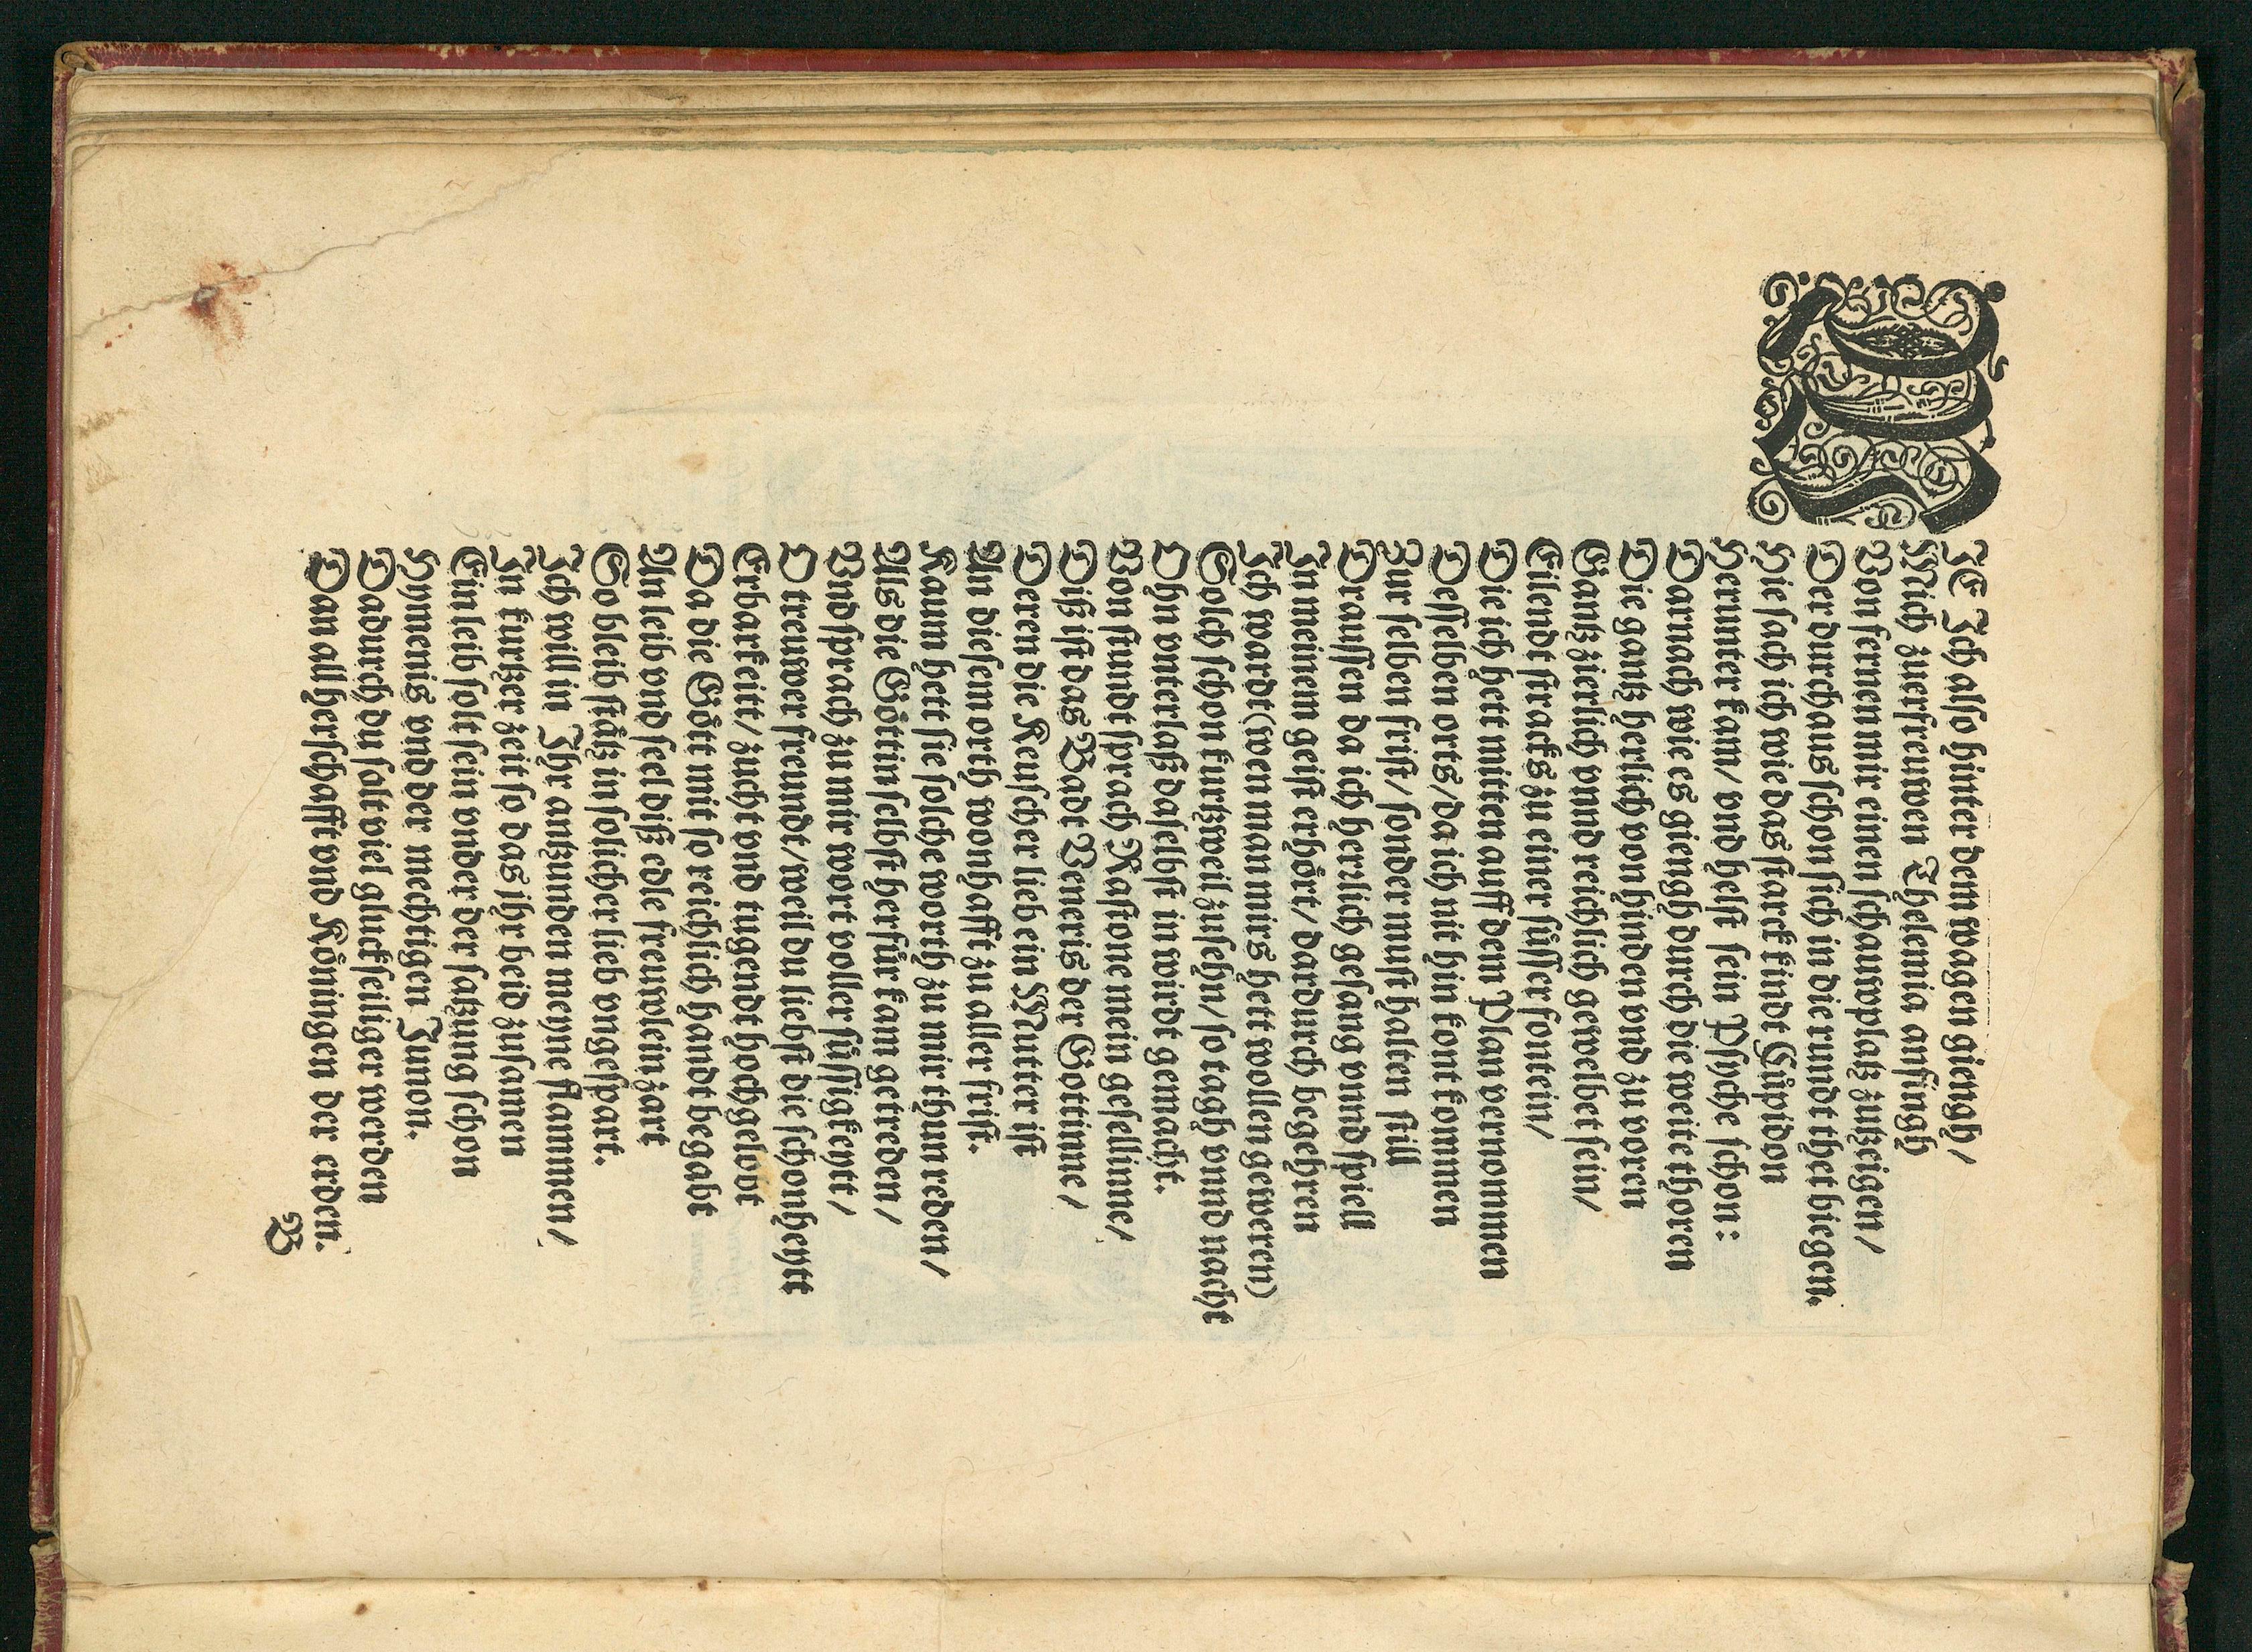 ALs Ich also hinter dem wagen giengh /
Mich zuerfreuwen Thelemia anfingh
Von fernen mir einen schauwplatz zutzeigen /
Der durchaus schon sich in die rundt thet biegen.
Hie sach ich wie das starck kindt Cůpidon
Herunter kam / vnd helst sein Psyche schon:
Darnach wie es giengh durch die weite thoren
Die gantz herlich von hinden vnd zu voren
Gantz zierlich vnnd reichlich gewelbet sein /
Eilendt stracks zu einer sůsser fontein /
Die ich hett mitten auff dem Plan vernommen
Desselben orts / da ich nit hin kont kommen
Zur selben frist / sonder must halten still
Draussen da ich herrlich gesang vnnd spiell
In meinem geist erhört / dardurch begehren
Ich wardt (wen man mirs hett wollen geweren)
Solch schon kurtzweil zusehn / so tagh vnnd nacht
Ohn vnterlaß daselbst in wirdt gemacht.
Von stundt sprach Rastone mein gesellinne /
Diß ist das Badt Veneris der Gottinne /
Deren die Keuscher lieb ein Mutter ist
An diesem orth wonhafft zu aller frist.
Kaum hett sie solche worth zu mir thun reden /
Als die Göttin selbst herfůr kam getreden /
Vnd sprach zu mir wort voller sůssigkeytt /
O treuwer freundt / weil du liebst die schonheytt
Erbarkeitt / zucht vnd tugendt hochgelobt
Da die Gött mit so reichlich handt begabt
An leib vnd seel diß edle freuwlein zart
So bleib stätz in solicher lieb vngespart.
Ich will in Ihr antzunden meyne flammen /
In kurtzer zeit so das ihr beid zusamen
Ein leib solt sein vnder der satzung schon
Hymenis vnd der mechtigen Iunon.
Dadurch du solt viel gluckseiliger werden
Dan all herschafft vnd Köningen der erden.
B